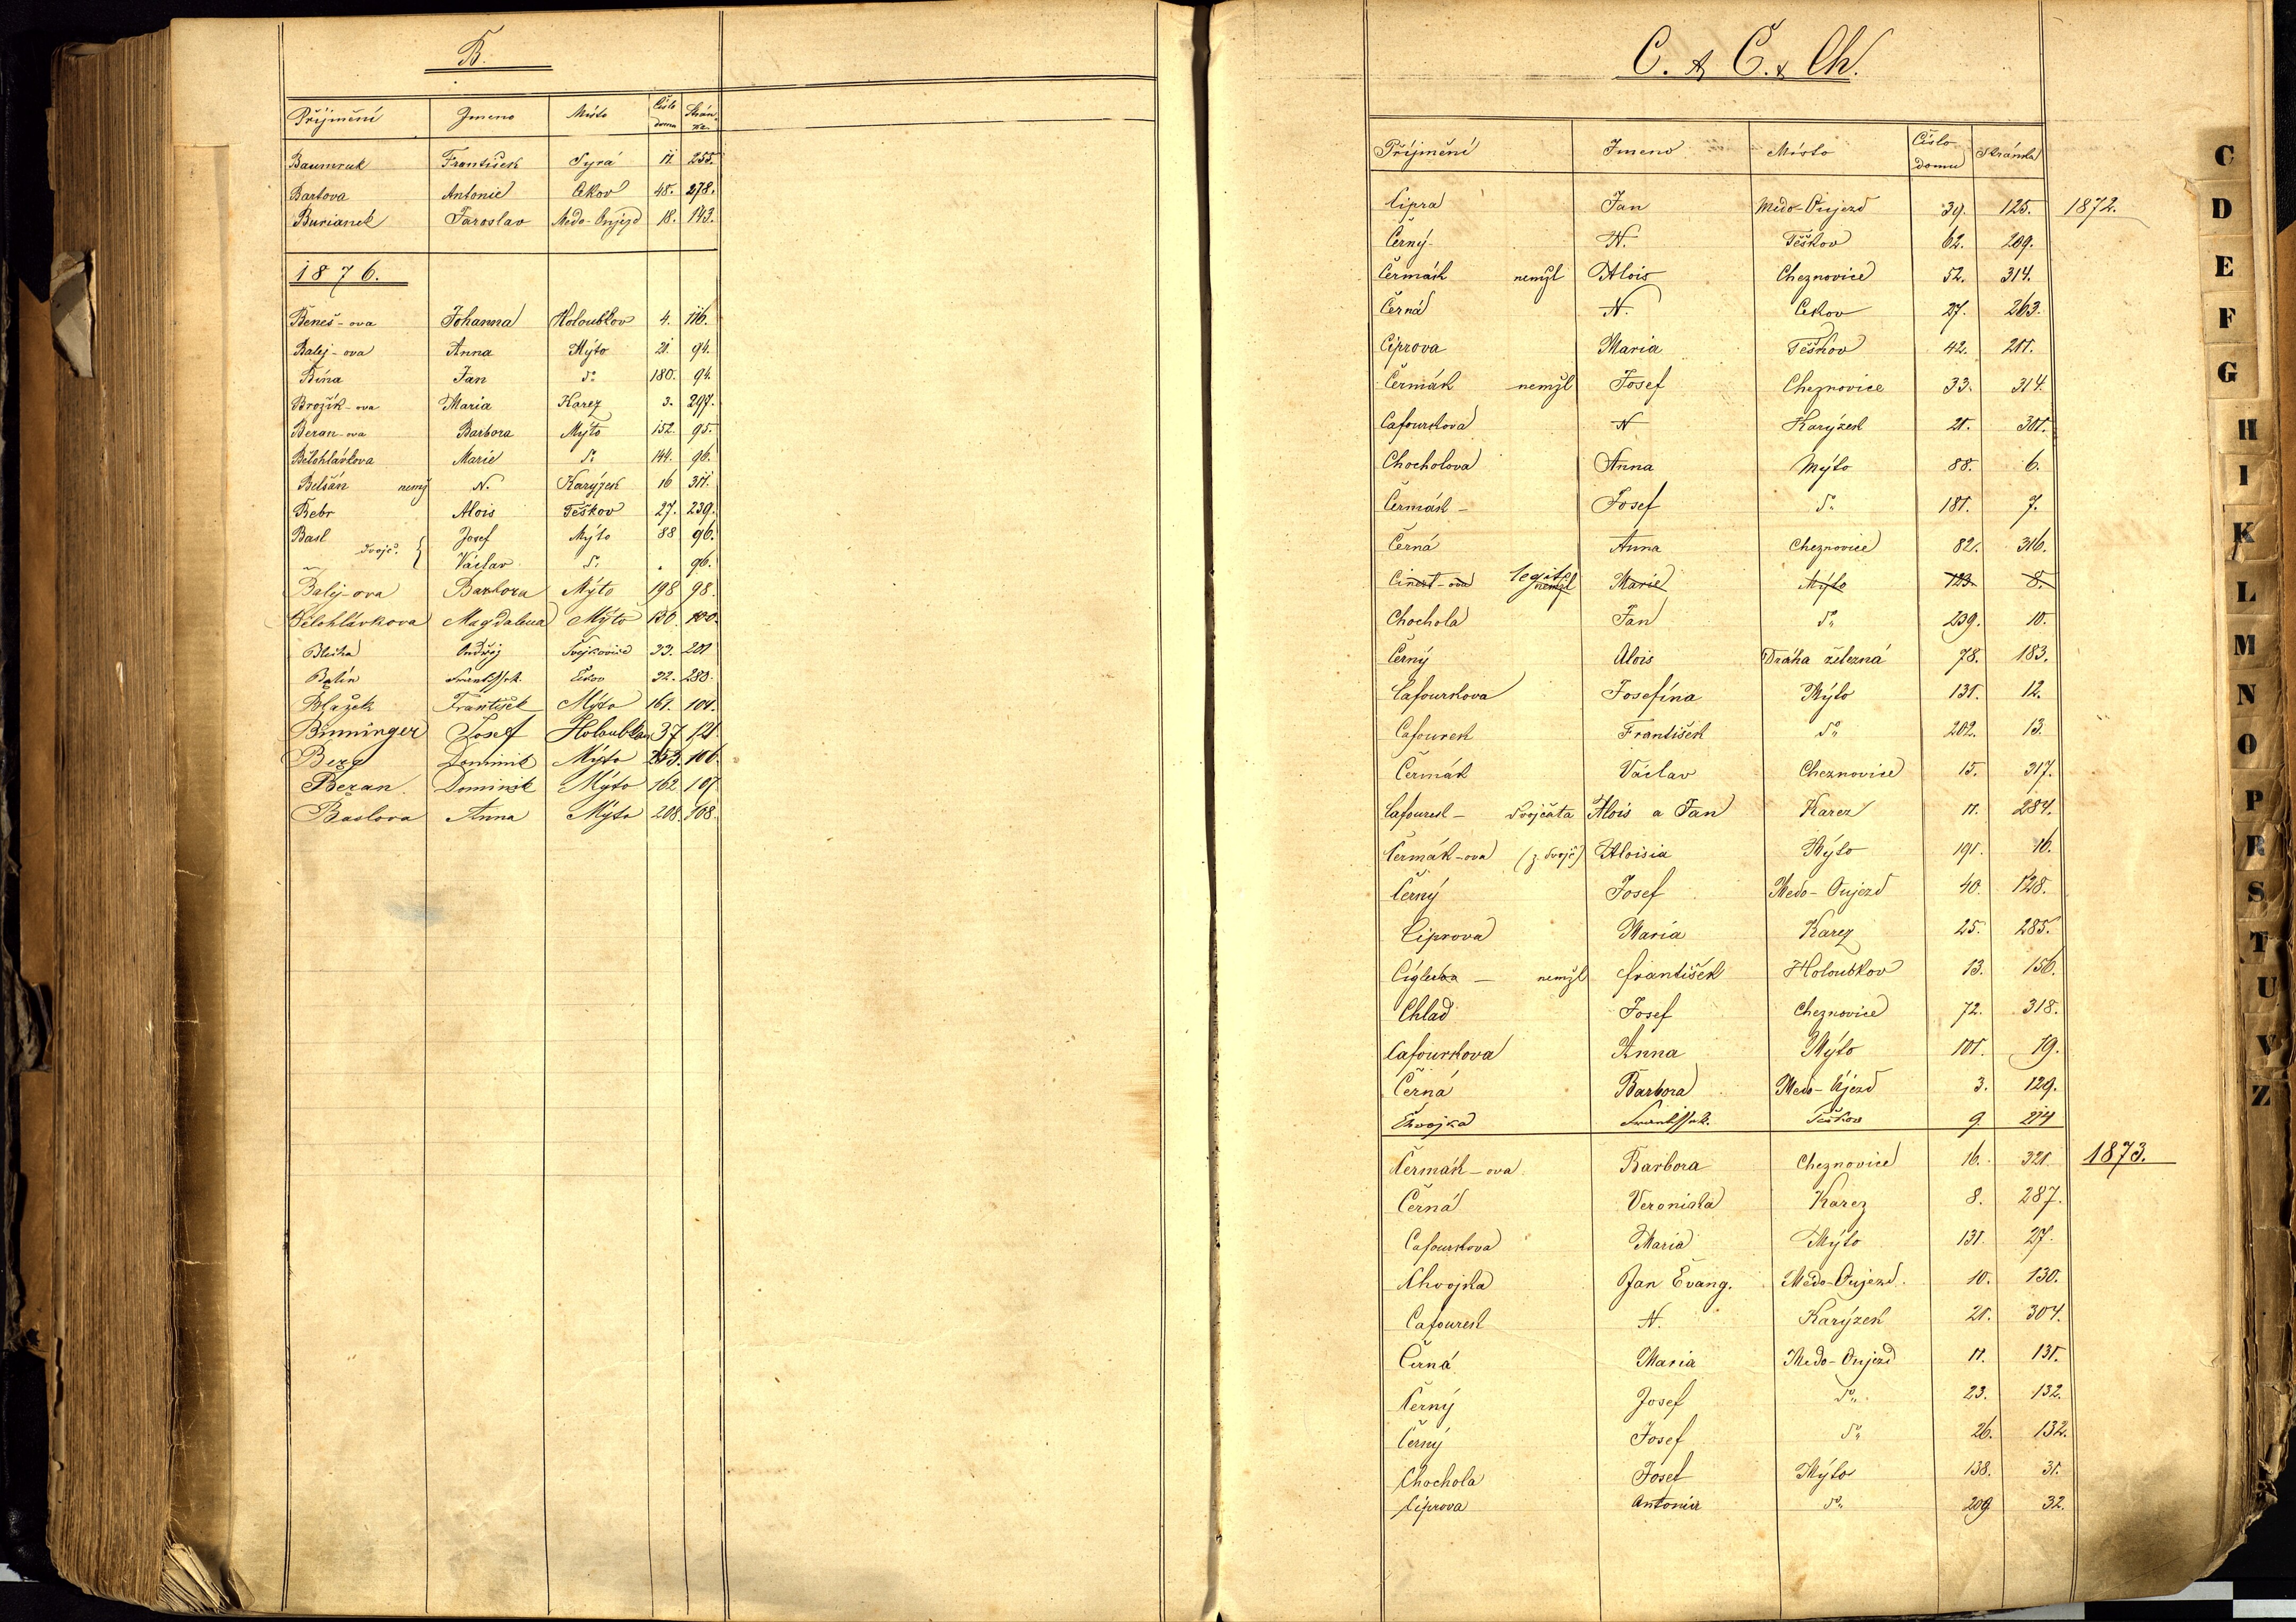 B.
Příjmení Jmeno Místo Číslo domu Stránka
Baumruk František Syrá 11. 255.
Bartova Antonie Cekov 48. 278.
Burianek Jaroslav Medo-Oujezd 18. 143.
1876.
Beneš-ova Johanna Holoubkov 4. 116.
Balej-ova Anna Mýto 21. 94.
Bína Jan do 180. 94.
Brožík-ova Maria Karez 3. 297.
Beran-ova Barbora Mýto 152. 95.
Bělohlávkova Marie do 144. 96.
Belšán nemž N. Karýzek 16 311.
Bebr Alois Těškov 27. 239.
Basl Josef Mýto 88 96.
dvojč. { Václav do 96.
Balej-ova Barbora Mýto 198 98.
Bělohlávkova Magdalena Mýto 156. 100.
Blecha Ondřej Švejkovice 33. 201
František 32. 280.
Blažek František Mýto 161. 104.
Binninger Josef Holoubkov 37 121.
Berg Dominik Mýto 253. 106.
Beran Dominik Mýto 162 107
Baslova Anna Mýto 208. 108.
C. & Č. & Ch.
Příjmění Jmeno Místo Číslo domu Stránka
Cipra Jan Medo-Oujezd 39. 125. 1872.
Černý N. Těškov 62. 209.
Čermák nemžl Alois Cheznovice 52. 314.
Černá N. Cekov 27. 263.
Ciprova Maria Těškov 42. 211.
Čermák nemžl Josef Cheznovice 33. 314.
Cafourkova N Karýzek 21. 301.
Chocholova Anna Mýto 88. 6.
Čermák - Josef do 181. 7.
Černá Anna Cheznovice 82. 316.
-ova legit. nemžl Marie Mýto 123. 8.
Chochola Jan do 239. 10.
Černý Alois Dráha železná 78. 183.
Cafourkova Josefína Mýto 131. 12.
Cafourek František do 202. 13.
Čermák Václav Cheznovice 15. 317.
Cafourek - dvojčata Alois a Jan Karez 11. 284.
Čermák-ova (z dvojč) Aloisia Mýto 191. 16.
Černý Josef Medo-Oujezd 40. 128.
Ciprova Maria Karez 25. 285.
nemžl František Holoubkov 13. 156.
Chlad Josef Cheznovice 72. 318.
Cafourkova Anna Mýto 101. 19.
Černá Barbora Medo-Újezd 3. 129.
Chvojka František Těškov 9 214
Čermák-ova Barbora Cheznovice 16. 321. 1873.
Černá Veronika Karez 8. 287.
Cafourkova Maria Mýto 131. 27.
Chvojka Jan Evang. Medo-Oujezd. 10. 130.
Cafourek N. Karýzek 21. 304.
Černá Maria Medo-Oujezd 11. 131.
Černý Josef do 23. 132.
Černý Josef do 26. 132.
Chochola Josef Mýto 138. 31.
Ciprova Antonia do 209 32.
C
D
E
F
G
H
I
K
L
M
N
O
P
R
S
T
U
V
Z